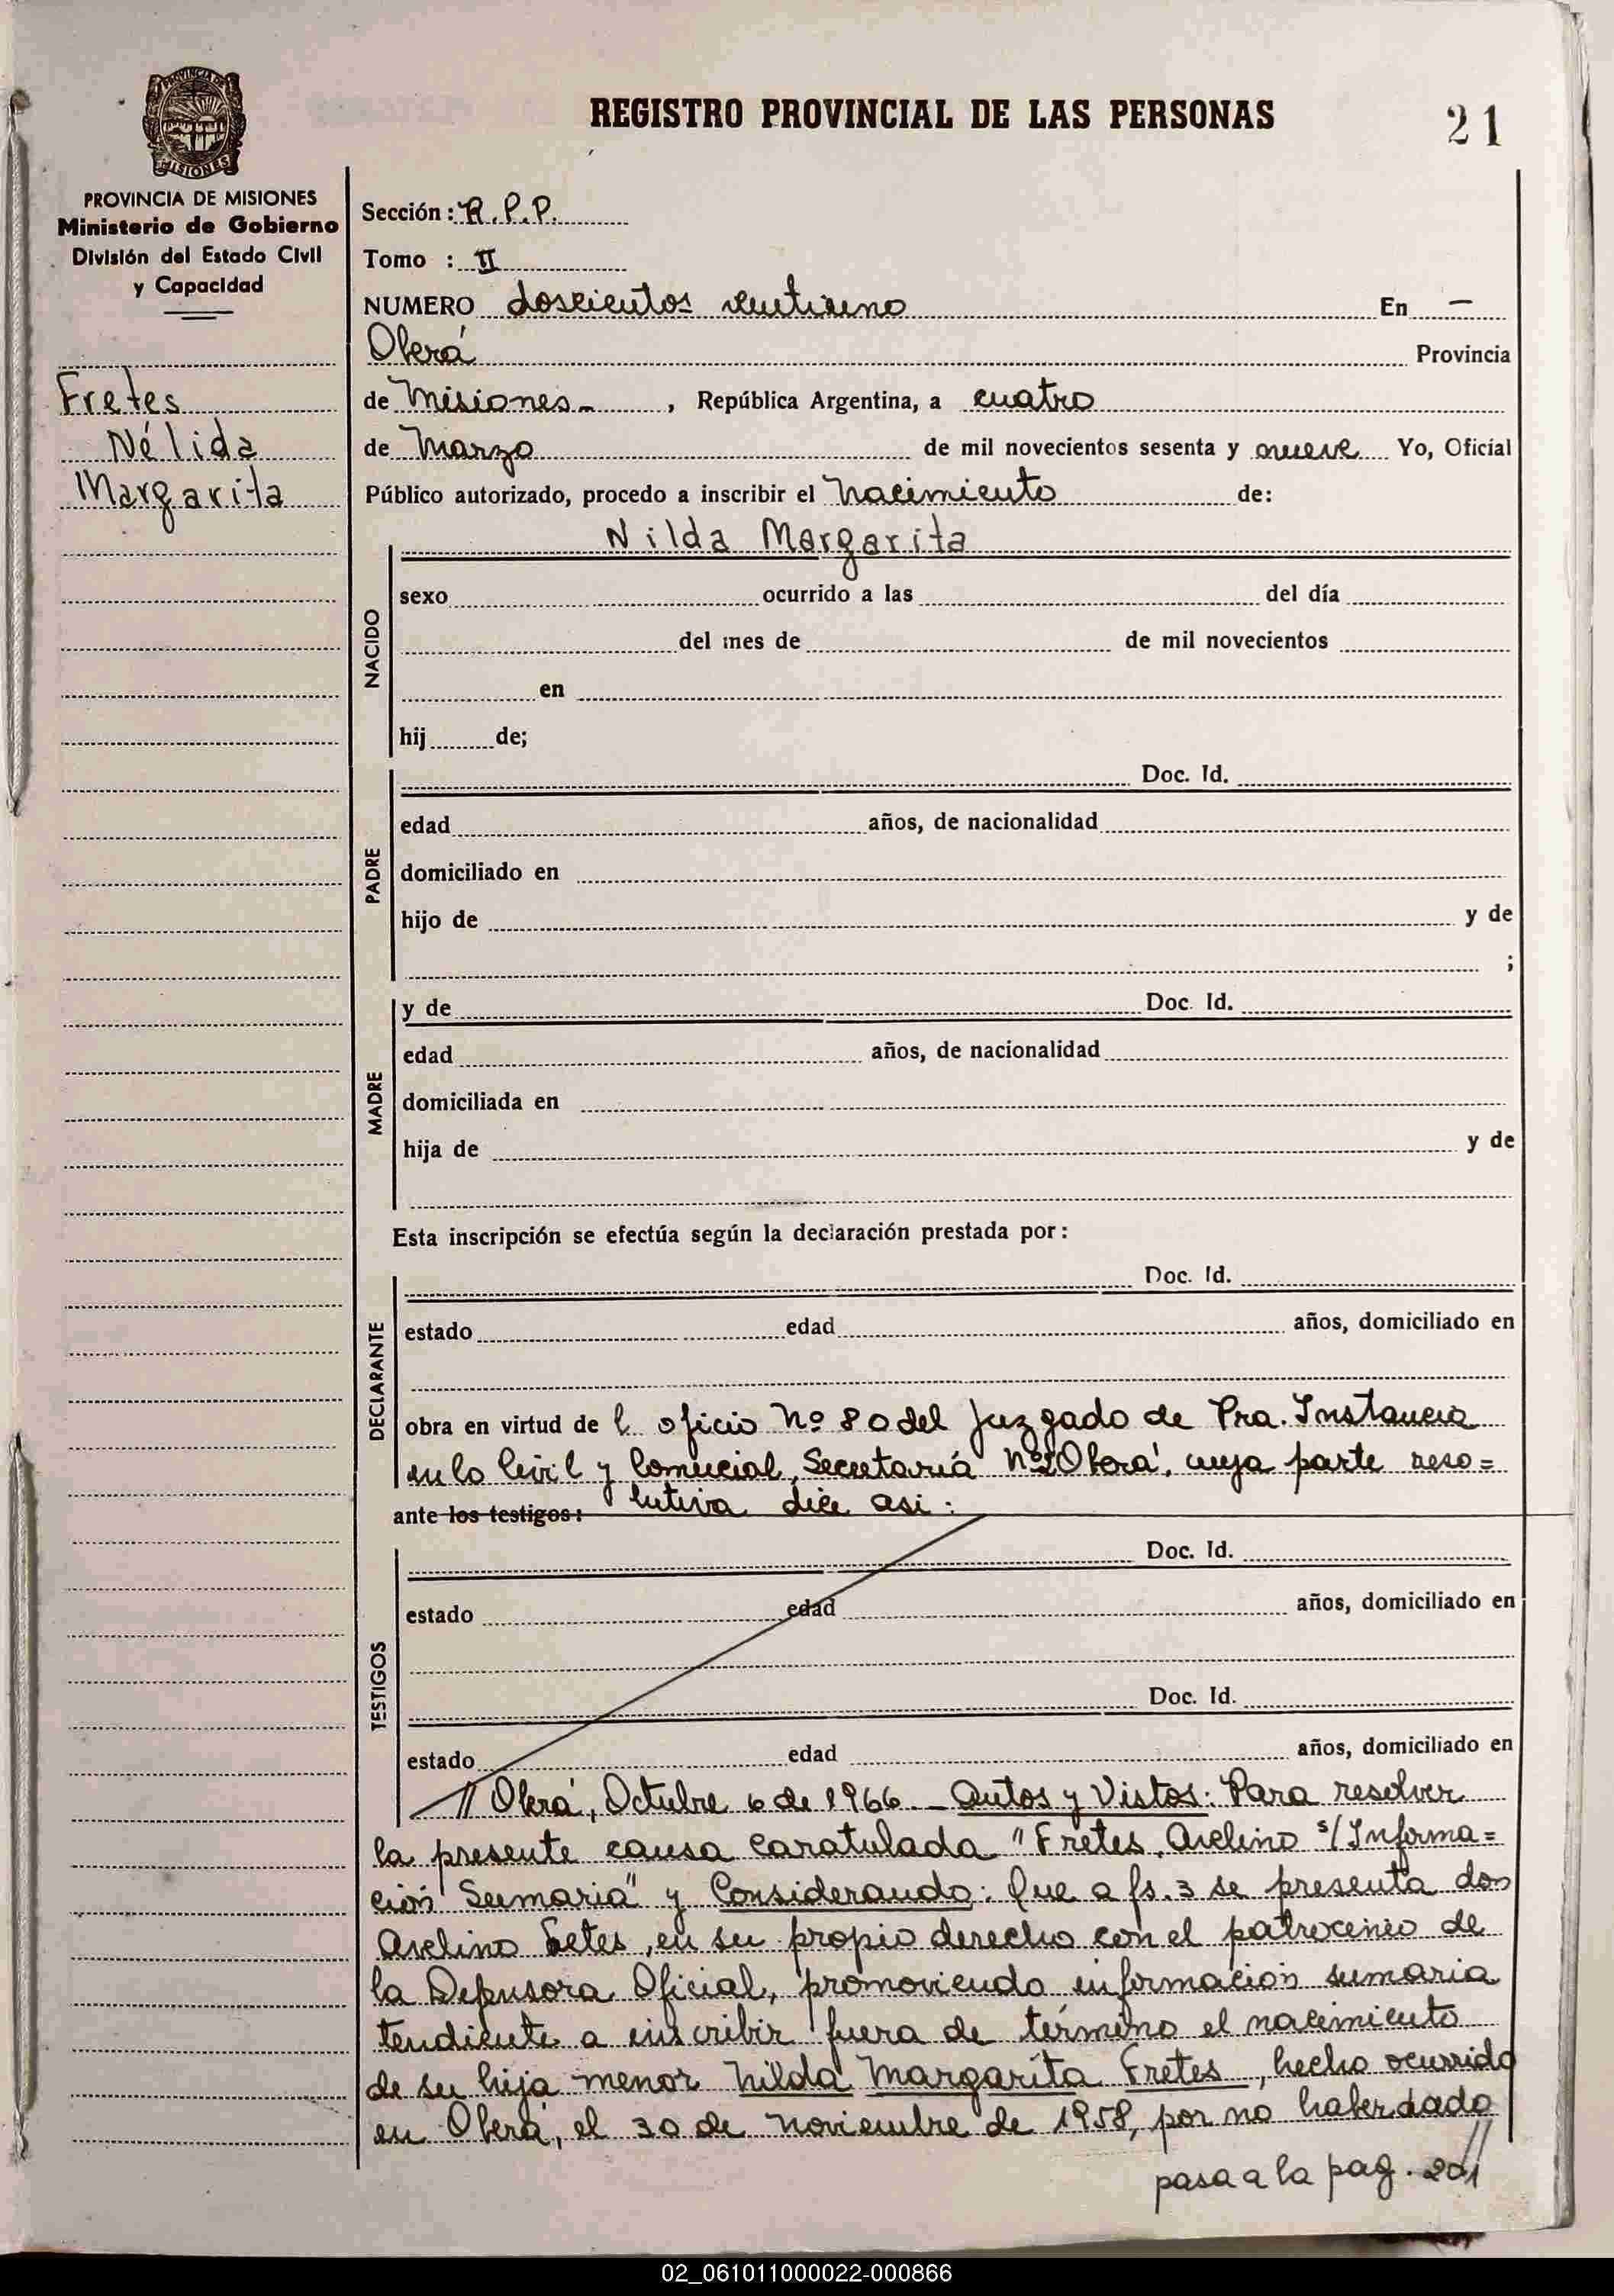 REGISTRO PROVINCIAL DE LAS PERSONAS
21
PROVINCIA DE
MISIONES
PROVINCIA DE MISIONES
Ministerio de Gobierno
División del Estado Civil
y Capacidad
Fretes
Nélida
Margarita
Sección: R.P.P.
Tomo : II
NUMERO doscientos veintiuno En —
Oberá Provincia
de Misiones - , República Argentina, a cuatro
de Marzo de mil novecientos sesenta y nueve Yo, Oficial
Público autorizado, procedo a inscribir el Nacimiento de:
NACIDO
Nilda Margarita
sexo ocurrido a las del día
del mes de de mil novecientos
en
hij de;
PADRE
Doc. Id.
edad años, de nacionalidad
domiciliado en
hijo de y de
;
MADRE
y de Doc. Id.
edad años, de nacionalidad
domiciliada en
hija de y de
Esta inscripción se efectúa según la declaración prestada por:
DECLARANTE
Doc. Id.
estado edad años, domiciliado en
obra en virtud de l oficio Nº 80 del Juzgado de Pra. Instancia
en lo Civil y Comercial, Secretaría Nº 2 Oberá, cuya parte reso=
ante los testigos: lutiva dice asi:
TESTIGOS
Doc. Id.
estado edad años, domiciliado en
Doc. Id.
estado edad años, domiciliado en
// Oberá, Octubre 6 de 1966. - Autos y Vistos: Para resolver
la presente causa caratulada "Fretes, Avelino s/Informa=
ción Sumaria" y Considerando: Que a fs. 3 se presenta don
Avelino Fretes, en su propio derecho con el patrocinio de
la Defensora Oficial, promoviendo información sumaria
tendiente a inscribir fuera de término el nacimiento
de su hija menor Nilda Margarita Fretes, hecho ocurrido
en Oberá, el 30 de Noviembre de 1958, por no haber dado
pasa a la pag. 201 //
02_061011000022-000866